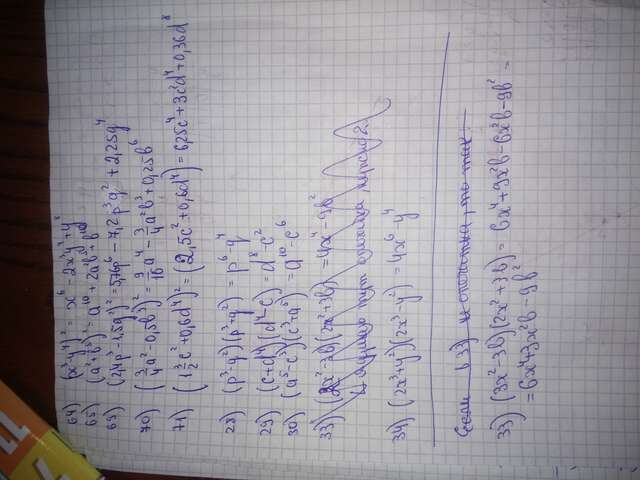 64) (x³-y⁴)² = x⁶ - 2x³y⁴ + y⁸
65) (a²+b⁵)² = a¹⁰ + 2a²b⁵ + b¹⁰
69) (2,4p³ - 1,5g²)² = 5,76p⁶ - 7,2p³g² + 2,25g⁴
70) (3/4a² - 0,5b³)² = 9/16a⁴ - 3/4a²b³ + 0,25b⁶
71) (1 3/2c² + 0,6d⁴)² = (2,5c² + 0,6d⁴) = 6,25c⁴ + 3c²d⁴ + 0,36d⁸
28) (p³-q²)(p³+q²) = p⁶-q⁴
29) (c+d⁴)(d⁴-c) = d⁸-c²
30) (a⁵-c³)(c³+a⁵) = a¹⁰-c⁶
33) (2x²-3b)(2x²+3b) = 4x⁴-9b²
тут опечатка,
34) (2x³+y²)(2x³-y²) = 4x⁶-y⁴
Если в 33) опечатка, то так:
33) (3x²-3b)(2x²+3b) = 6x⁴+9x²b-6x²b-9b² =
= 6x⁴+3x²b-9b²